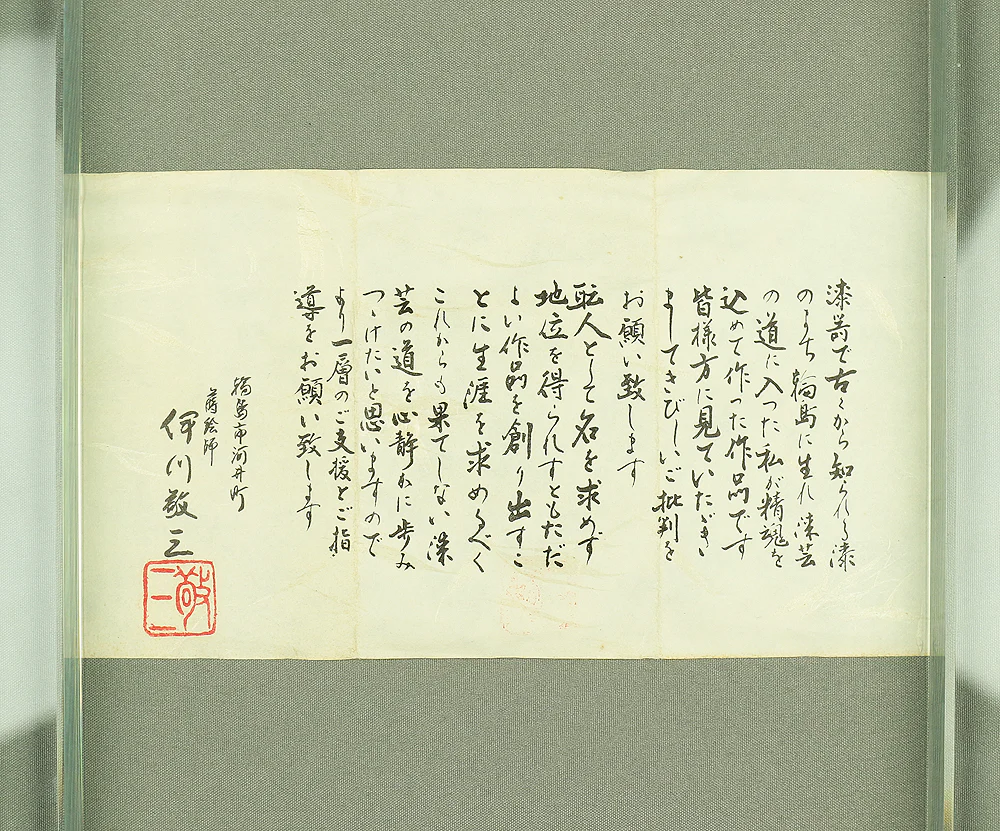 漆芸で古くから知られる漆
のまち輪島に生れ漆芸
の道に入った私が精魂を
込めて作った作品です
皆様方に見ていたゞき
ましてきびしいご批判を
お願い致します
匠人として名を求めず
地位を得られずともただ
よい作品を創り出すこ
とに生涯を求めるべく
これからも果てしない漆
芸の道を心静かに歩み
つゞけたいと思いますので
より一層のご支援とご指
導をお願い致します
輪島市河井町
蒔絵師
伊川敬三
敬三